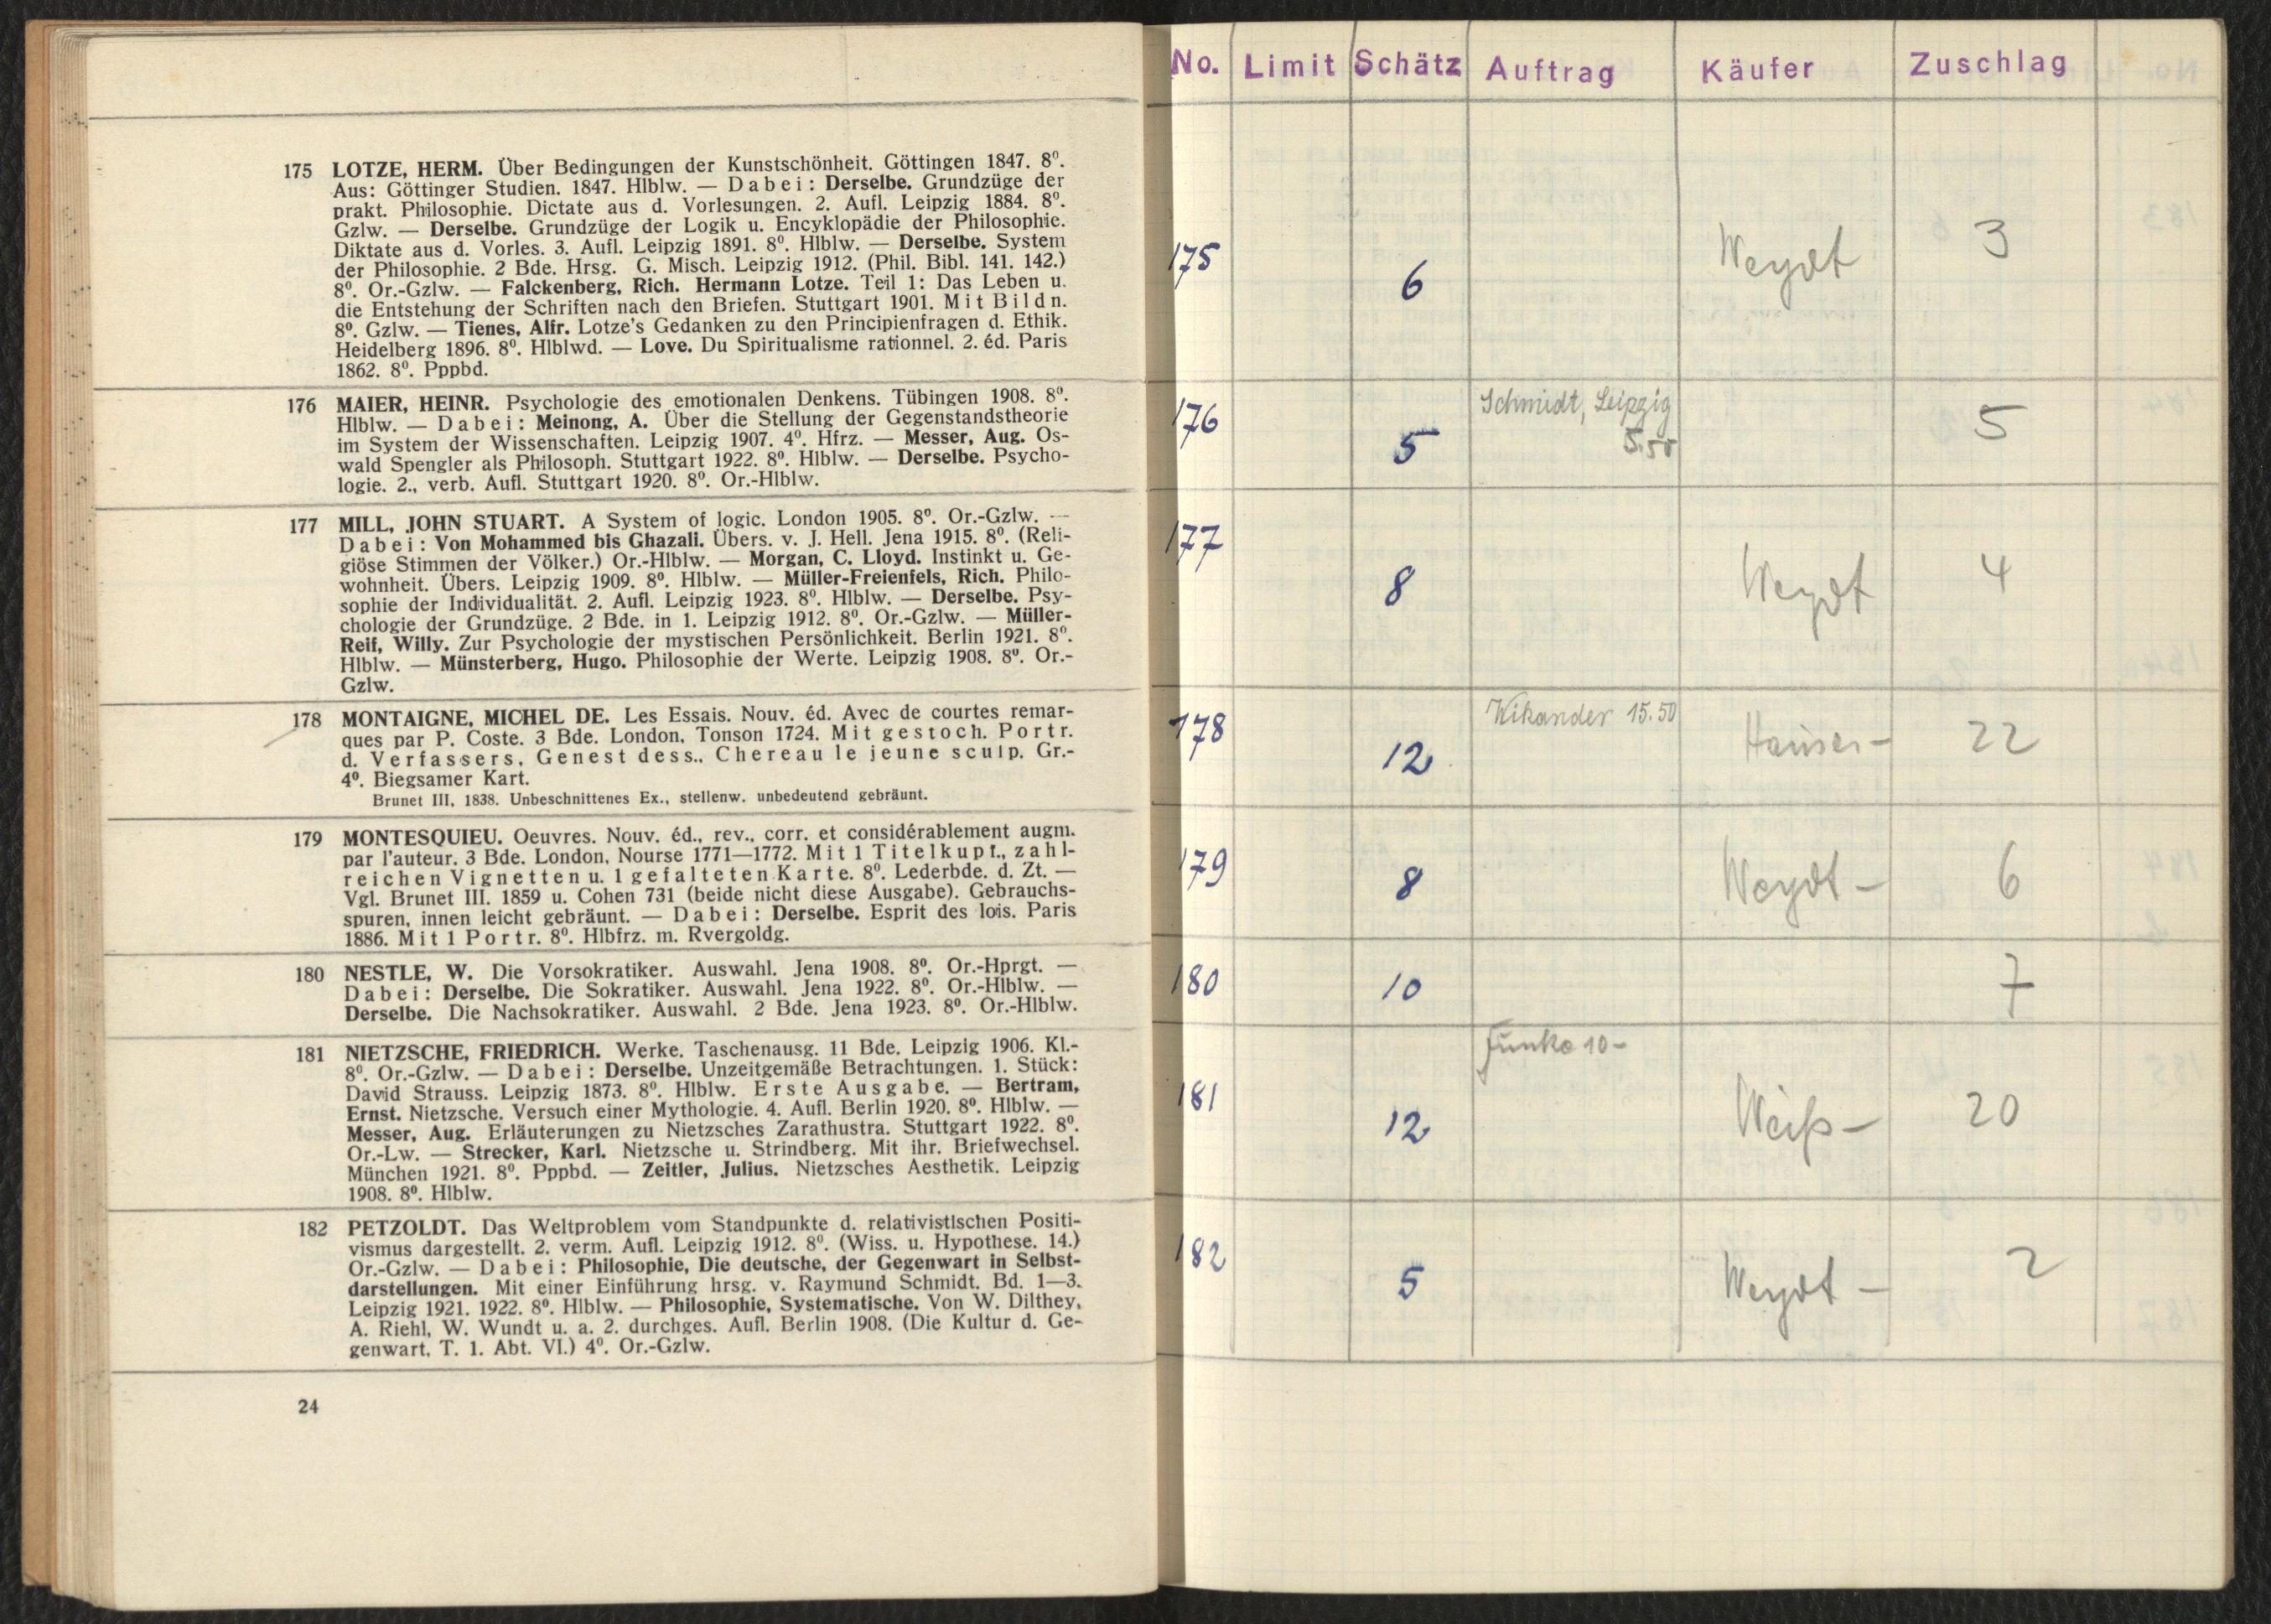 175 LOTZE, HERM. Über Bedingungen der Kunstschönheit. Göttingen 1847. 8⁰.
Aus: Göttinger Studien. 1847. Hlblw. — Dabei: Derselbe. Grundzüge der
prakt. Philosophie. Dictate aus d. Vorlesungen. 2. Aufl. Leipzig 1884. 8⁰.
Gzlw. — Derselbe. Grundzüge der Logik u. Encyklopädie der Philosophie.
Diktate aus d. Vorles. 3. Aufl. Leipzig 1891. 8⁰. Hlblw. — Derselbe. System
der Philosophie. 2 Bde. Hrsg. G. Misch. Leipzig 1912. (Phil. Bibl. 141. 142.)
8⁰. Or.-Gzlw. — Falckenberg, Rich. Hermann Lotze. Teil 1: Das Leben u.
die Entstehung der Schriften nach den Briefen. Stuttgart 1901. Mit Bildn.
8⁰. Gzlw. — Tienes, Alfr. Lotze's Gedanken zu den Principienfragen d. Ethik.
Heidelberg 1896. 8⁰. Hlblwd. — Love. Du Spiritualisme rationnel. 2. éd. Paris
1862. 8⁰. Pppbd.
176 MAIER, HEINR. Psychologie des emotionalen Denkens. Tübingen 1908. 8⁰.
Hlblw. — Dabei: Meinong, A. Über die Stellung der Gegenstandstheorie
im System der Wissenschaften. Leipzig 1907. 4⁰. Hfrz. — Messer, Aug. Os-
wald Spengler als Philosoph. Stuttgart 1922. 8⁰. Hlblw. — Derselbe. Psycho-
logie. 2., verb. Aufl. Stuttgart 1920. 8⁰. Or.-Hlblw.
177 MILL, JOHN STUART. A System of logic. London 1905. 8⁰. Or.-Gzlw. —
Dabei: Von Mohammed bis Ghazali. Übers. v. J. Hell. Jena 1915. 8⁰. (Reli-
giöse Stimmen der Völker.) Or.-Hlblw. — Morgan, C. Lloyd. Instinkt u. Ge-
wohnheit. Übers. Leipzig 1909. 8⁰. Hlblw. — Müller-Freienfels, Rich. Philo-
sophie der Individualität. 2. Aufl. Leipzig 1923. 8⁰. Hlblw. — Derselbe. Psy-
chologie der Grundzüge. 2 Bde. in 1. Leipzig 1912. 8⁰. Or.-Gzlw. — Müller-
Reif, Willy. Zur Psychologie der mystischen Persönlichkeit. Berlin 1921. 8⁰.
Hlblw. — Münsterberg, Hugo. Philosophie der Werte. Leipzig 1908. 8⁰. Or.-
Gzlw.
178 MONTAIGNE, MICHEL DE. Les Essais. Nouv. éd. Avec de courtes remar-
ques par P. Coste. 3 Bde. London, Tonson 1724. Mit gestoch. Portr.
d. Verfassers, Genest dess., Chereau le jeune sculp. Gr.-
4⁰. Biegsamer Kart.
Brunet III, 1838. Unbeschnittenes Ex., stellenw. unbedeutend gebräunt.
179 MONTESQUIEU. Oeuvres. Nouv. éd., rev., corr. et considérablement augm.
par l'auteur. 3 Bde. London, Nourse 1771—1772. Mit 1 Titelkupf., zahl-
reichen Vignetten u. 1 gefalteten Karte. 8⁰. Lederbde. d. Zt. —
Vgl. Brunet III. 1859 u. Cohen 731 (beide nicht diese Ausgabe). Gebrauchs-
spuren, innen leicht gebräunt. — Dabei: Derselbe. Esprit des lois. Paris
1886. Mit 1 Portr. 8⁰. Hlbfrz. m. Rvergoldg.
180 NESTLE, W. Die Vorsokratiker. Auswahl. Jena 1908. 8⁰. Or.-Hprgt. —
Dabei: Derselbe. Die Sokratiker. Auswahl. Jena 1922. 8⁰. Or.-Hlblw. —
Derselbe. Die Nachsokratiker. Auswahl. 2 Bde. Jena 1923. 8⁰. Or.-Hlblw.
181 NIETZSCHE, FRIEDRICH. Werke. Taschenausg. 11 Bde. Leipzig 1906. Kl.-
8⁰. Or.-Gzlw. — Dabei: Derselbe. Unzeitgemäße Betrachtungen. 1. Stück:
David Strauss. Leipzig 1873. 8⁰. Hlblw. Erste Ausgabe. — Bertram,
Ernst. Nietzsche. Versuch einer Mythologie. 4. Aufl. Berlin 1920. 8⁰. Hlblw. —
Messer, Aug. Erläuterungen zu Nietzsches Zarathustra. Stuttgart 1922. 8⁰.
Or.-Lw. — Strecker, Karl. Nietzsche u. Strindberg. Mit ihr. Briefwechsel.
München 1921. 8⁰. Pppbd. — Zeitler, Julius. Nietzsches Aesthetik. Leipzig
1908. 8⁰. Hlblw.
182 PETZOLDT. Das Weltproblem vom Standpunkte d. relativistischen Positi-
vismus dargestellt. 2. verm. Aufl. Leipzig 1912. 8⁰. (Wiss. u. Hypothese. 14.)
Or.-Gzlw. — Dabei: Philosophie, Die deutsche, der Gegenwart in Selbst-
darstellungen. Mit einer Einführung hrsg. v. Raymund Schmidt. Bd. 1—3.
Leipzig 1921. 1922. 8⁰. Hlblw. — Philosophie, Systematische. Von W. Dilthey,
A. Riehl, W. Wundt u. a. 2. durchges. Aufl. Berlin 1908. (Die Kultur d. Ge-
genwart, T. 1. Abt. VI.) 4⁰. Or.-Gzlw.
24
No. Limit Schätz Auftrag Käufer Zuschlag
175 6 Weydt 3
176 5 Schmidt, Leipzig 5
5.50
177 8 Weydt 4
178 12 Wikander 15.50 Hauser - 22
179 8 Weydt - 6
180 10 7
181 12 Funke 10 - Weiß - 20
182 5 Weydt - 2